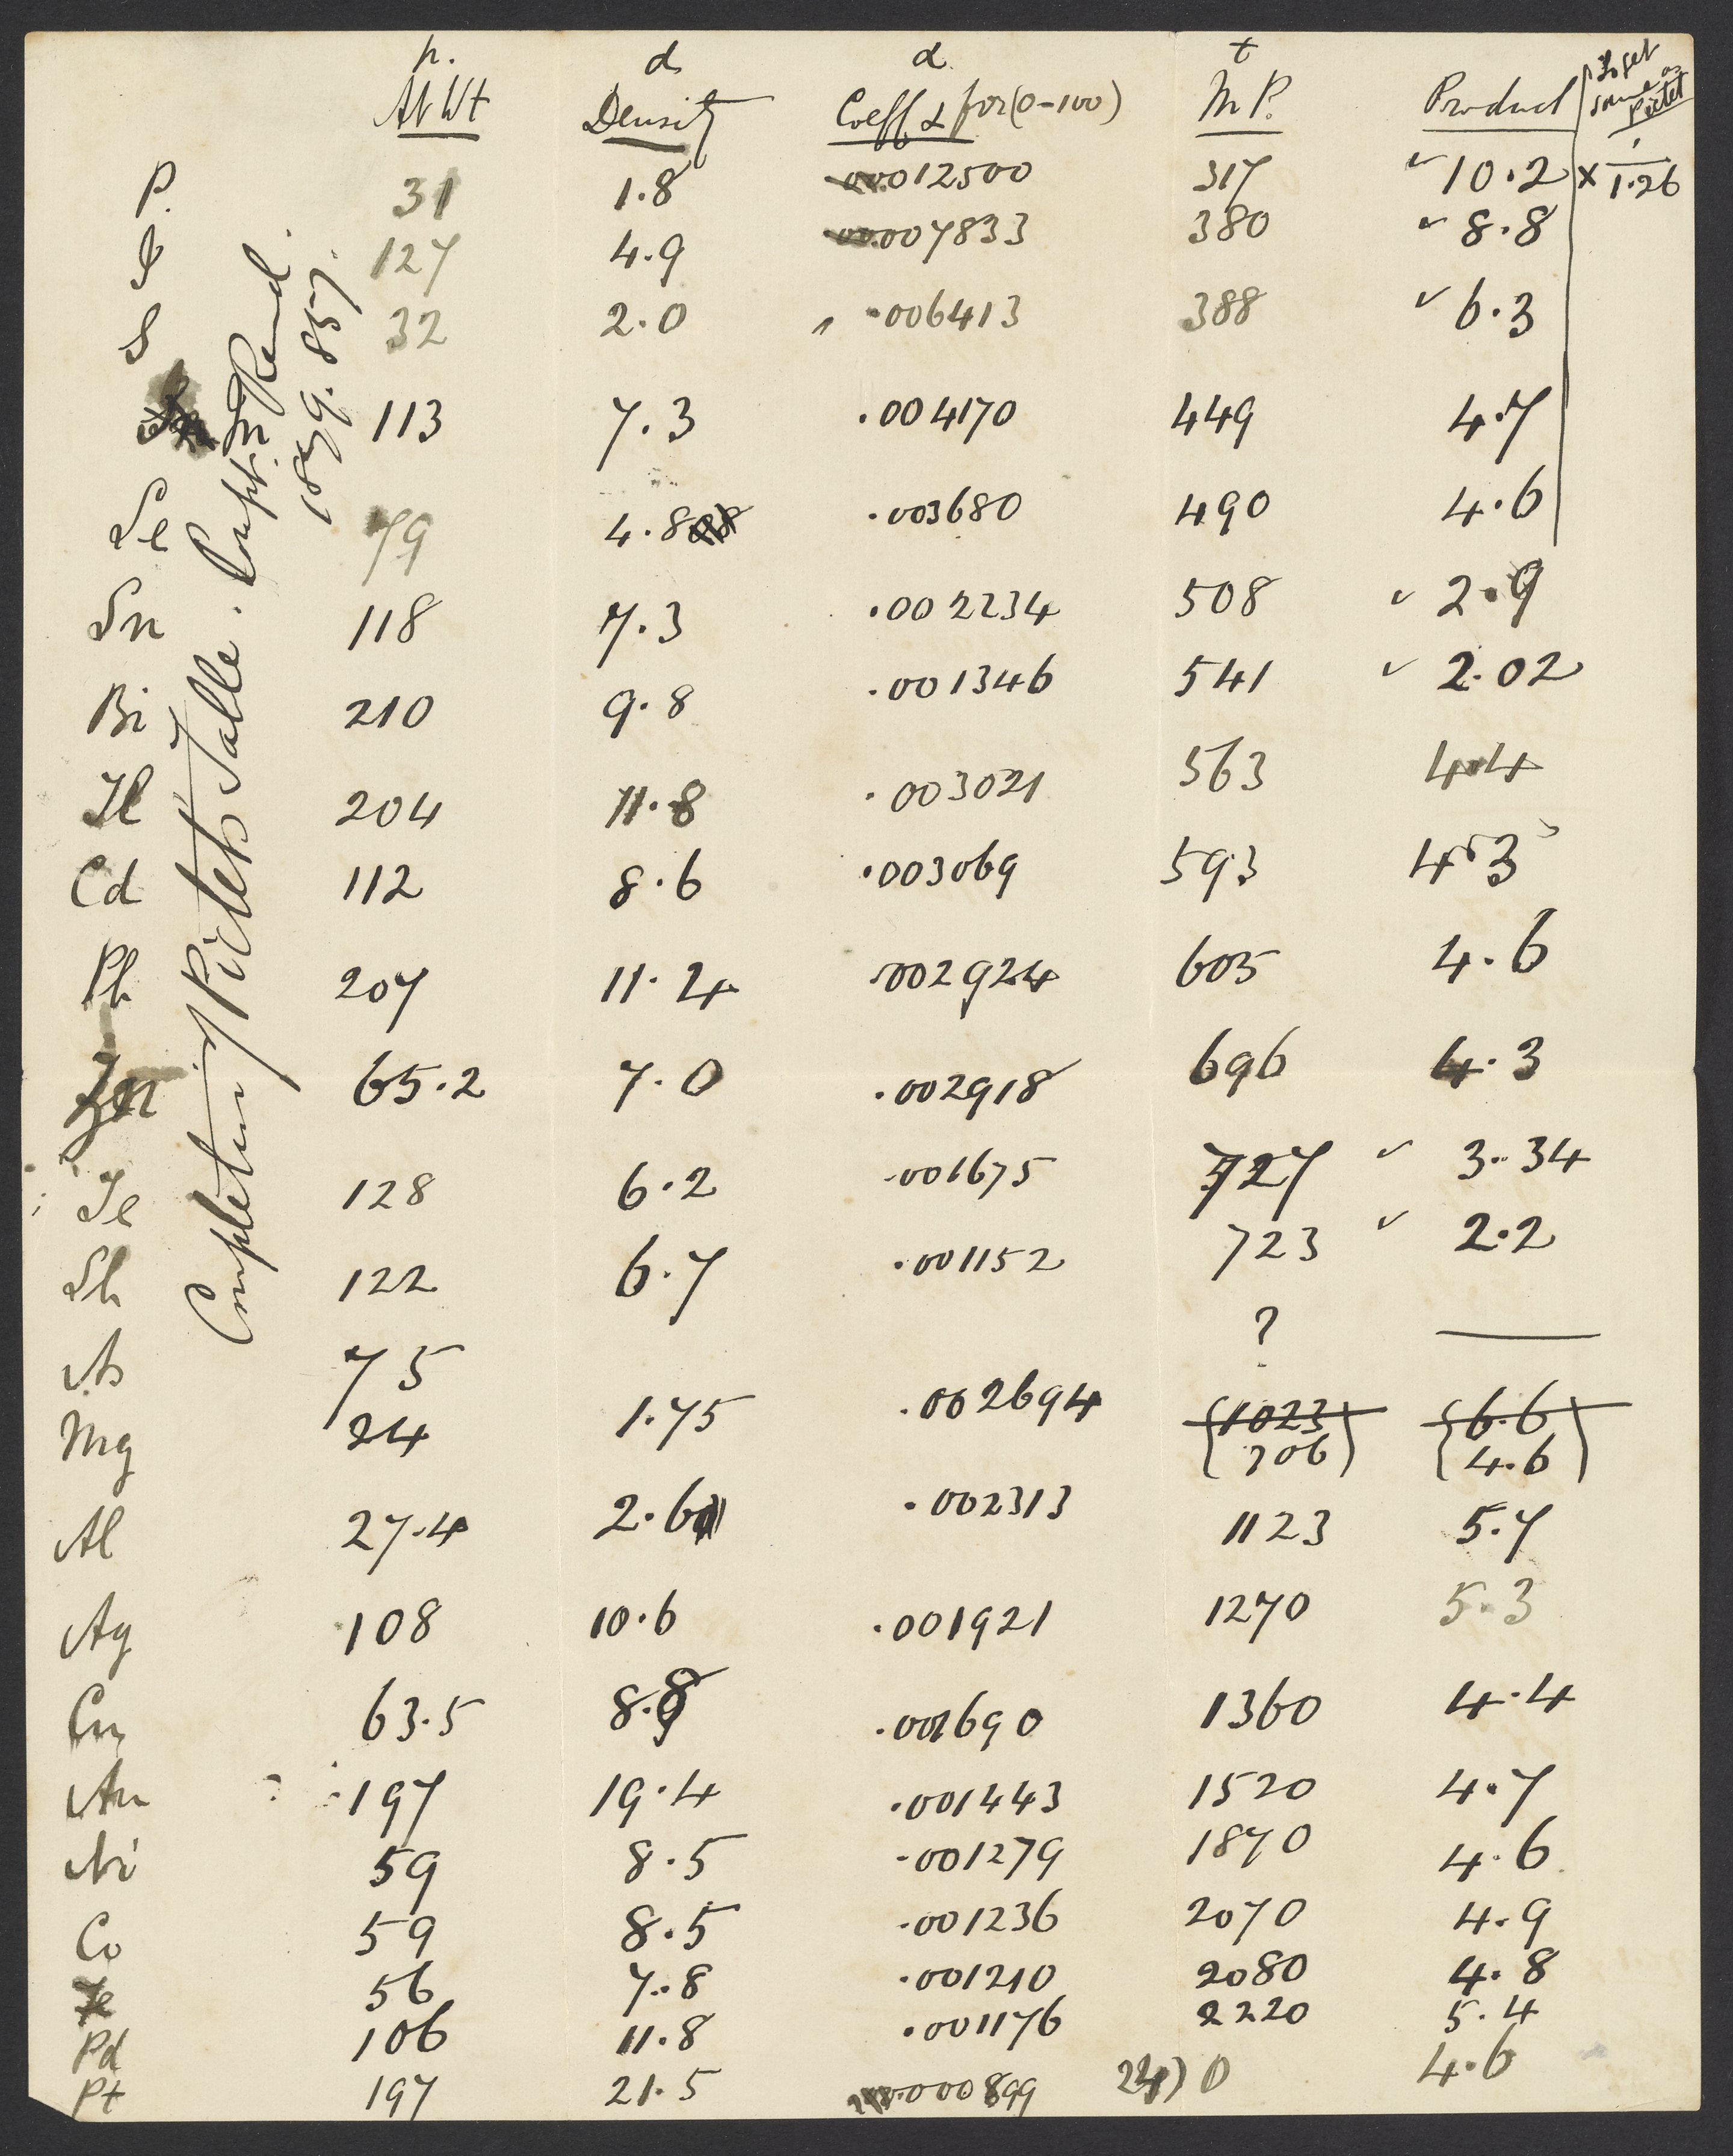 p. d α t
At Wt Density Coeff α for (0-100) M.P. Product To get same as Pictet
P. 31 1.8 .012500 317 ✓ 10.2 × 1/1.26
I 127 4.9 .007833 380 ✓ 8.8
S 32 2.0 .006413 388 ✓ 6.3
In 113 7.3 .004170 449 4.7
Se 79 4.8 .003680 490 4.6
Sn 118 7.3 .002234 508 ✓ 2.9
Bi 210 9.8 .001346 541 ✓ 2.02
Tl 204 11.8 .003021 563 4.4
Cd 112 8.6 .003069 593 4.3
Pb 207 11.4 .002924 605 4.6
Zn 65.2 7.0 .002918 696 4.3
Te 128 6.2 .001675 727 ✓ 3.34
Sb 122 6.7 .001152 723 ✓ 2.2
As 75 ? —
Mg 24 1.75 .002694 (1023) (6.6)
(706) (4.6)
Al 27.4 2.6 .002313 1123 5.7
Ag 108 10.6 .001921 1270 5.3
Cu 63.5 8.8 .001690 1360 4.4
Au 197 19.4 .001443 1520 4.7
Ni 59 8.5 .001279 1870 4.6
Co 59 8.5 .001236 2070 4.9
Fe 56 7.8 .001210 2080 4.8
Pd 106 11.8 .001176 2220 5.4
Pt 197 21.5 .000899 0 4.6
Completion / Pictet's Table. Compt. Rend.
1879. 857.